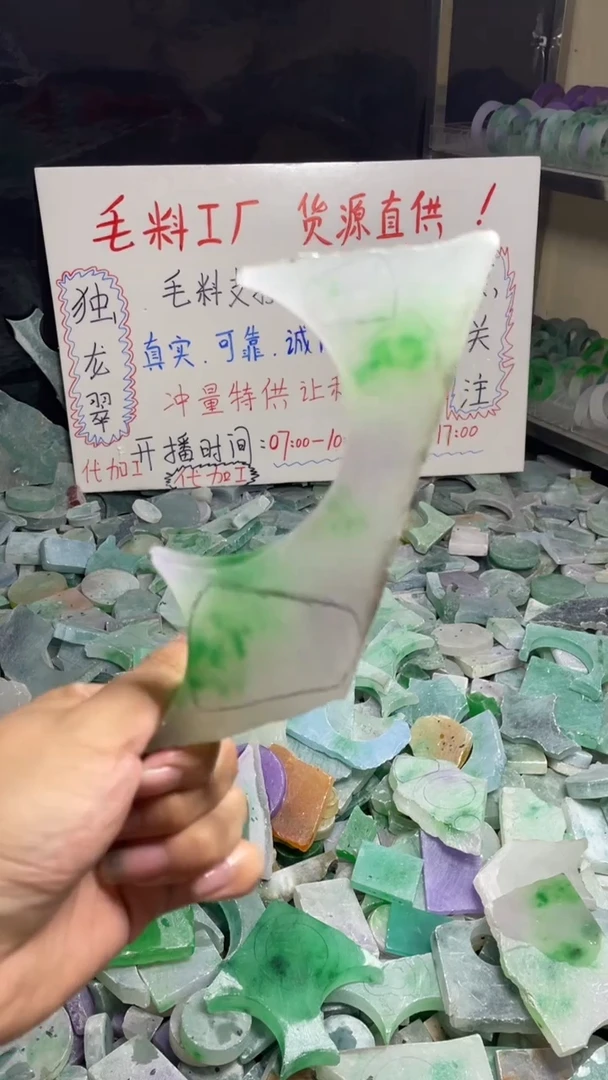 毛料工厂 货源直供！
独龙翠
毛料
关注
真实.可靠.诚
冲量特供让
开播时间:07:00-10 17:00
代加工
代加工